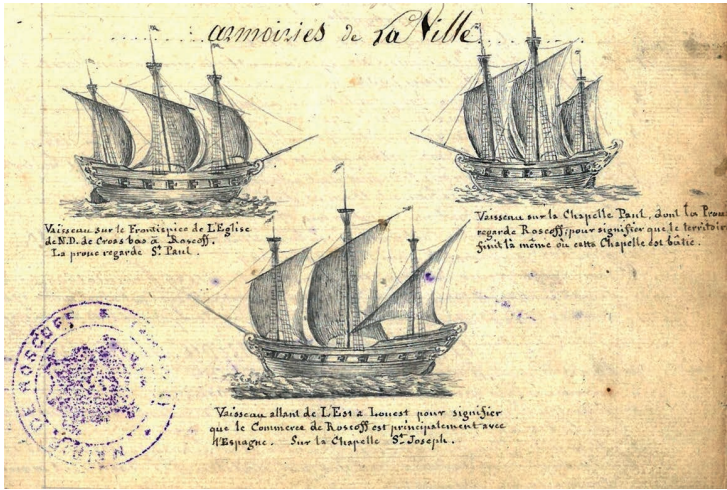 armoiries de La Ville
Vaisseau sur le Frontispice de L'Eglise
de N.D. de Croas bas à Roscoff.
La proue regarde St Paul.
Vaisseau sur la Chapelle Paul, dont la Proue
regarde Roscoff; pour signifier que le territoire
finit là même où cette Chapelle est bâtie.
Vaisseau allant de L'Est à Louest pour signifier
que le Commerce de Roscoff est principalement avec
l'Espagne. Sur la Chapelle St Joseph.
DE ROSCOFF